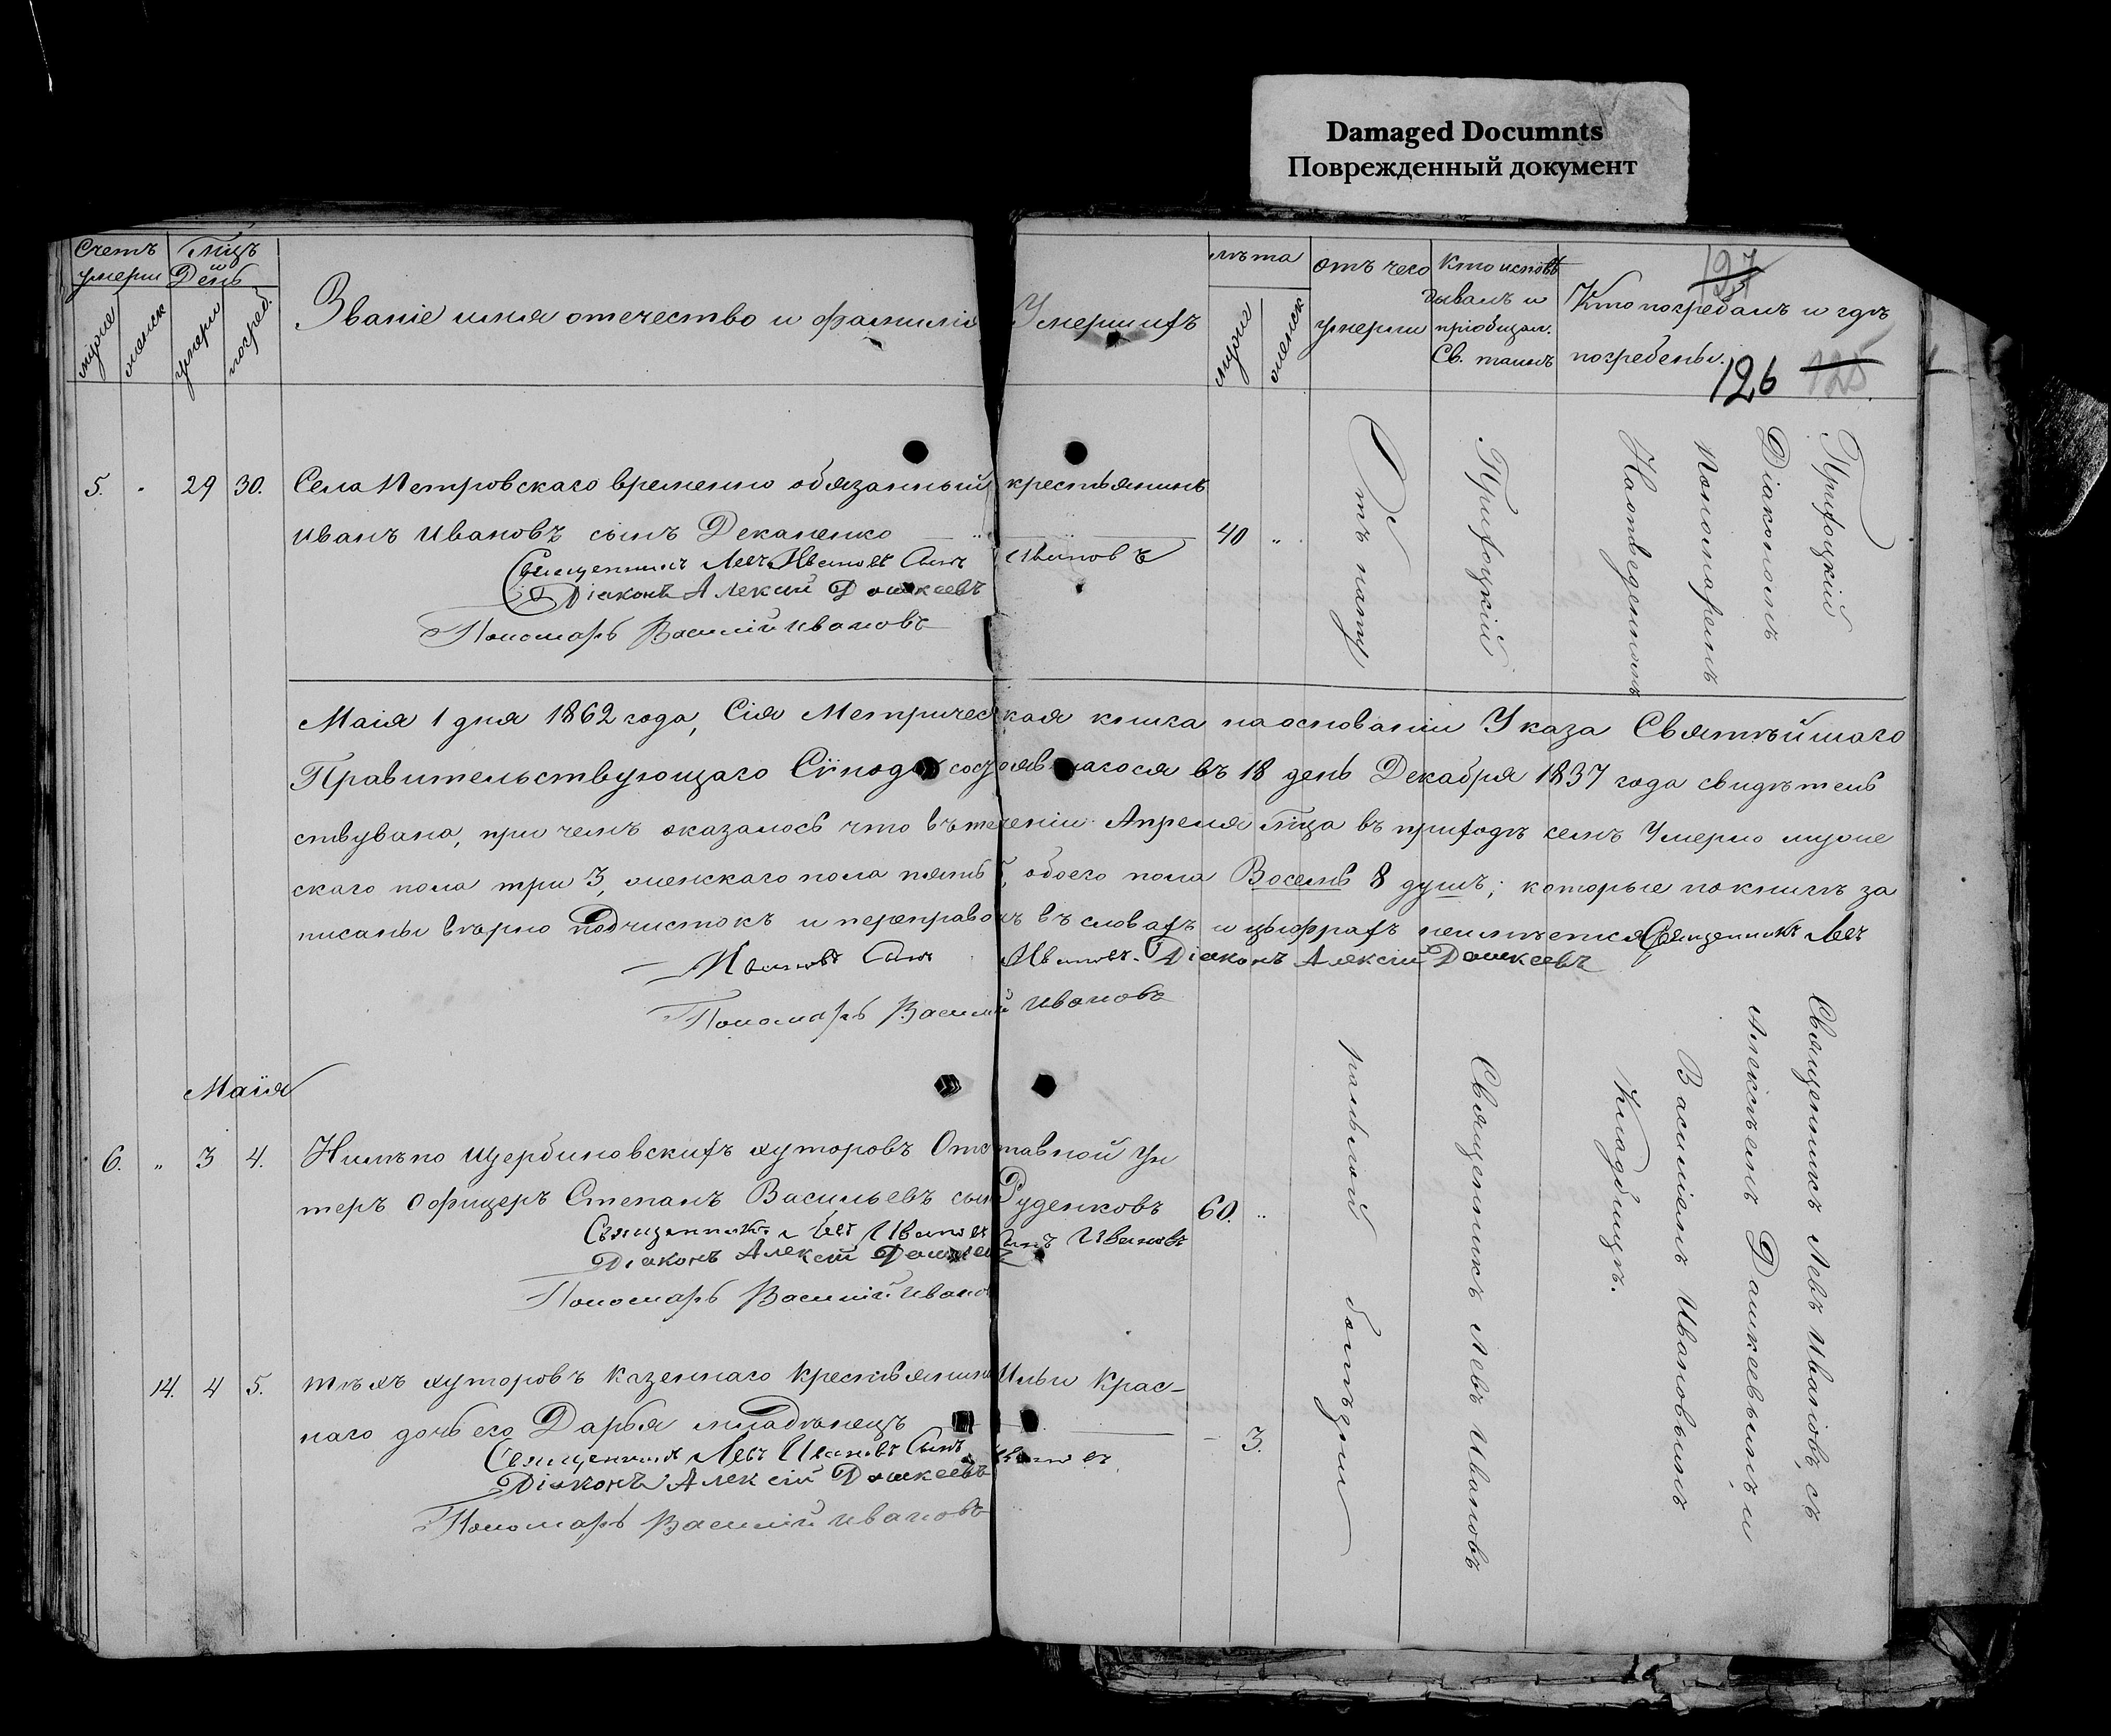 Damaged Documnts
Поврежденный документ
Счетъ
умерш
Мцъ
и
День
мужск
женск
умерш
погреб.
Званіе имя отечество и фамилія Умершихъ
лѣта
мужск
женск
отъ чего
умерли
Кто исповѣ
дывалъ и
пріобщал.
Св. таинъ
127
Кто погребалъ и гдѣ
погребены.
126 125
5. „ 29 30. Села Петровскаго временно обязанный крестьянинъ
Иванъ Ивановъ сынъ Деканенко 40 „
Священникъ Левъ Ивановъ Сынъ Ивановъ
Діаконъ Алексій Дашкеевъ
Пономарь Василій Ивановъ
Приходскій
Приходскій
Діакономъ
Пономаремъ
Маія 1 дня 1862 года, Сія Метрическая книга на основаніи Указа Святѣйшаго
Правительствующаго Сѵнода состоявшагося въ 18 день Декабря 1837 года свидѣтель
ствувана, при чемъ оказалось что въ теченіи Апреля Мца въ приходѣ семъ Умерло муже
скаго пола три 3, женскаго пола пять 5, обоего пола Восемь 8 душъ; которые по книгѣ за
писаны вѣрно Подчистокъ и переправокъ въ словахъ и цыфрахъ неимѣется Священникъ Левъ
Ивановъ Сынъ Ивановъ. Діаконъ Алексій Дашкеевъ
Пономарь Василій Ивановъ
Маія
6. „ 3 4. Нимѣпо Щербиновскихъ хуторовъ Отставной Ун
теръ Офицеръ Степанъ Васильевъ сынъ Руденковъ 60. „
Священникъ Левъ Ивановъ Сынъ Ивановъ
Діаконъ Алексій Дашкеевъ
Пономарь Василій Ивановъ
14. 4 5. Тѣхъ хуторовъ Казеннаго Крестьянина Ильи Крас-
наго дочь его Дарья младѣнецъ – 3.
Священникъ Левъ Ивановъ Сынъ Ивановъ
Діаконъ Алексій Дашкеевъ
Пономарь Василій Ивановъ
болѣзни
Священникъ Левъ Ивановъ
Священникъ Левъ Ивановъ, съ
Алексѣемъ Дашкеевымъ и
Василіемъ Ивановымъ
Кладбищѣ.